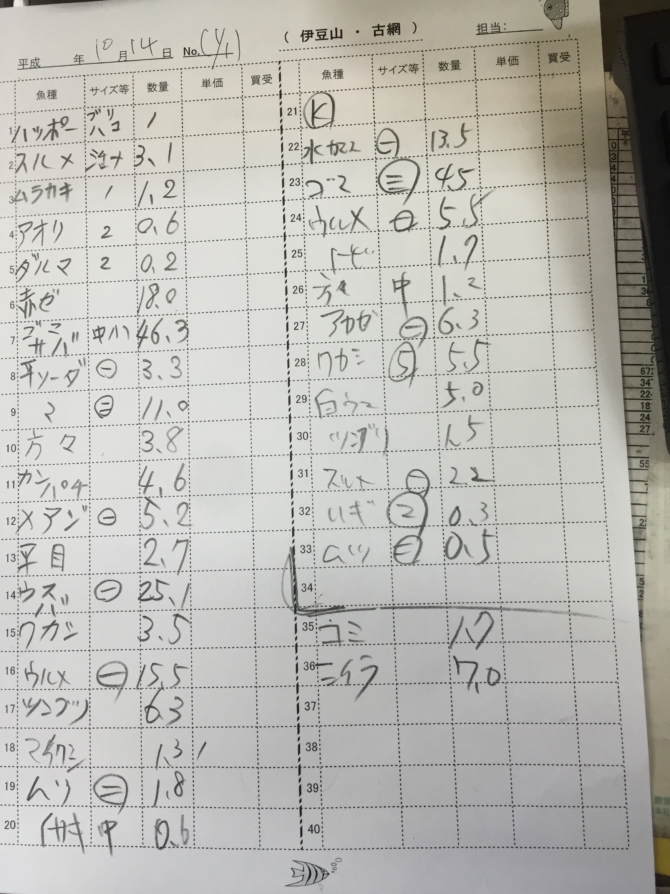 平成 年 10 月 14 日 No. (1/1)
( 伊豆山 ・ 古網 ) 担当:
魚種 サイズ等 数量 単価 買受
1 ハッポー ブリハコ 1
2 スルメ 3,1
3 ムラカキ 1 1,2
4 アオリ 2 0,6
5 ダルマ 2 0,2
6 赤ゼ 18.0
7 ゴマサバ 中小 46,3
8 平ソーダ ㊀ 3.3
9 マ ㊁ 11,0
10 方々 3,8
11 カンパチ 4,6
12 メアジ ㊀ 5,2
13 平目 2,7
14 ウスバ ㊀ 25,1
15 ワカシ 3,5
16 ウルメ ㊀ 15,5
17 ツンブリ 6,3
18 1,3
19 ムツ ㊁ 1,8
20 イサキ 中 0,6
魚種 サイズ等 数量 単価 買受
21 Ⓚ
22 水カマス ㊀ 13.5
23 ゴマ ㊂ 4,5
24 ウルメ ㊀ 5,5
25 1,7
26 方々 中 1,2
27 アカゼ ㊀ 6,3
28 ワカシ Ⓢ 5,5
29 白ウマ 5,0
30 ツンブリ 1,5
31 スルメ ㊀ 2,2
32 ハギ ② 0,3
33 ムツ ㊁ 0,5
34
35 コミ 1,7
36 ニイラ 7,0
37
38
39
40